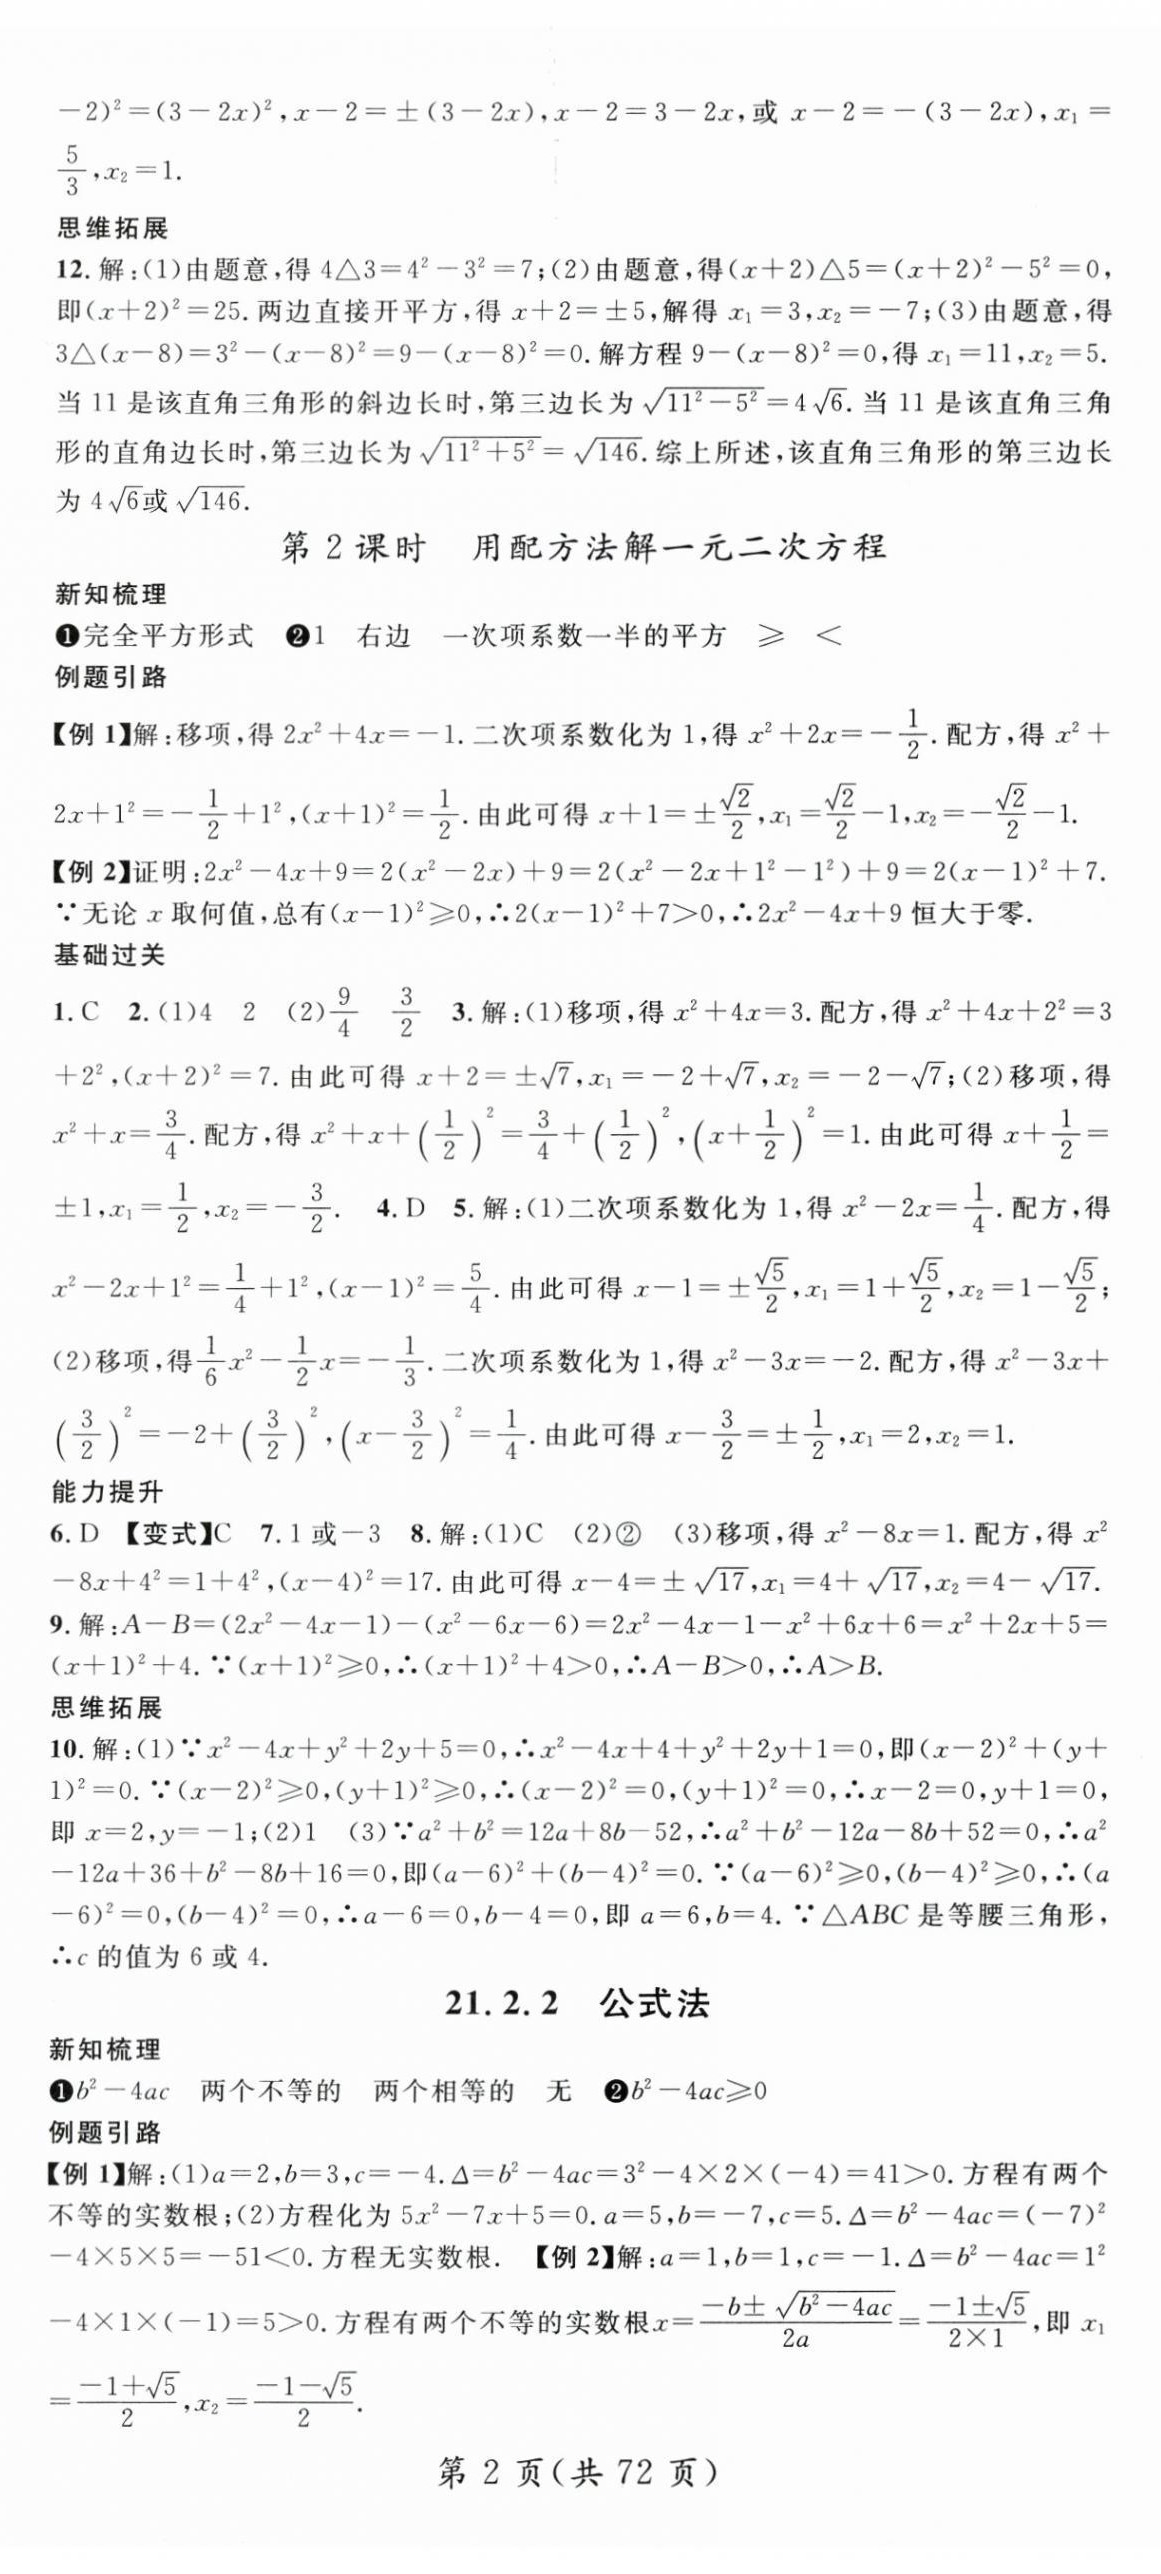 −2)²=(3−2x)²,x−2=±(3−2x),x−2=3−2x,或 x−2=−(3−2x),x₁=
5/3,x₂=1.
思维拓展
12.解:(1)由题意,得 4△3=4²−3²=7;(2)由题意,得(x+2)△5=(x+2)²−5²=0,
即(x+2)²=25.两边直接开平方,得 x+2=±5,解得 x₁=3,x₂=−7;(3)由题意,得
3△(x−8)=3²−(x−8)²=9−(x−8)²=0.解方程 9−(x−8)²=0,得 x₁=11,x₂=5.
当 11 是该直角三角形的斜边长时,第三边长为√(11²−5²)=4√6.当 11 是该直角三角
形的直角边长时,第三边长为√(11²+5²)=√146.综上所述,该直角三角形的第三边长
为 4√6或√146.
第 2 课时 用配方法解一元二次方程
新知梳理
❶完全平方形式 ❷1 右边 一次项系数一半的平方 ≥ <
例题引路
【例 1】解:移项,得 2x²+4x=−1.二次项系数化为 1,得 x²+2x=−1/2.配方,得 x²+
2x+1²=−1/2+1²,(x+1)²=1/2.由此可得 x+1=±√2/2,x₁=√2/2−1,x₂=−√2/2−1.
【例 2】证明:2x²−4x+9=2(x²−2x)+9=2(x²−2x+1²−1²)+9=2(x−1)²+7.
∵无论 x 取何值,总有(x−1)²≥0,∴2(x−1)²+7>0,∴2x²−4x+9 恒大于零.
基础过关
1.C 2.(1)4 2 (2)9/4 3/2 3.解:(1)移项,得 x²+4x=3.配方,得 x²+4x+2²=3
+2²,(x+2)²=7.由此可得 x+2=±√7,x₁=−2+√7,x₂=−2−√7;(2)移项,得
x²+x=3/4.配方,得 x²+x+(1/2)²=3/4+(1/2)²,(x+1/2)²=1.由此可得 x+1/2=
±1,x₁=1/2,x₂=−3/2. 4.D 5.解:(1)二次项系数化为 1,得 x²−2x=1/4.配方,得
x²−2x+1²=1/4+1²,(x−1)²=5/4.由此可得 x−1=±√5/2,x₁=1+√5/2,x₂=1−√5/2;
(2)移项,得1/6x²−1/2x=−1/3.二次项系数化为 1,得 x²−3x=−2.配方,得 x²−3x+
(3/2)²=−2+(3/2)²,(x−3/2)²=1/4.由此可得 x−3/2=±1/2,x₁=2,x₂=1.
能力提升
6.D 【变式】C 7.1 或−3 8.解:(1)C (2)② (3)移项,得 x²−8x=1.配方,得 x²
−8x+4²=1+4²,(x−4)²=17.由此可得 x−4=±√17,x₁=4+√17,x₂=4−√17.
9.解:A−B=(2x²−4x−1)−(x²−6x−6)=2x²−4x−1−x²+6x+6=x²+2x+5=
(x+1)²+4.∵(x+1)²≥0,∴(x+1)²+4>0,∴A−B>0,∴A>B.
思维拓展
10.解:(1)∵x²−4x+y²+2y+5=0,∴x²−4x+4+y²+2y+1=0,即(x−2)²+(y+
1)²=0.∵(x−2)²≥0,(y+1)²≥0,∴(x−2)²=0,(y+1)²=0,∴x−2=0,y+1=0,
即 x=2,y=−1;(2)1 (3)∵a²+b²=12a+8b−52,∴a²+b²−12a−8b+52=0,∴a²
−12a+36+b²−8b+16=0,即(a−6)²+(b−4)²=0.∵(a−6)²≥0,(b−4)²≥0,∴(a
−6)²=0,(b−4)²=0,∴a−6=0,b−4=0,即 a=6,b=4.∵△ABC 是等腰三角形,
∴c 的值为 6 或 4.
21.2.2 公式法
新知梳理
❶b²−4ac 两个不等的 两个相等的 无 ❷b²−4ac≥0
例题引路
【例 1】解:(1)a=2,b=3,c=−4.Δ=b²−4ac=3²−4×2×(−4)=41>0.方程有两个
不等的实数根;(2)方程化为 5x²−7x+5=0.a=5,b=−7,c=5.Δ=b²−4ac=(−7)²
−4×5×5=−51<0.方程无实数根. 【例 2】解:a=1,b=1,c=−1.Δ=b²−4ac=1²
−4×1×(−1)=5>0.方程有两个不等的实数根x=(−b±√(b²−4ac))/2a=(−1±√5)/(2×1),即 x₁
=(−1+√5)/2,x₂=(−1−√5)/2.
第 2 页(共 72 页)